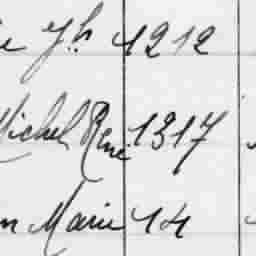 e Jh 1212
Michel René 1317
n Marie 14